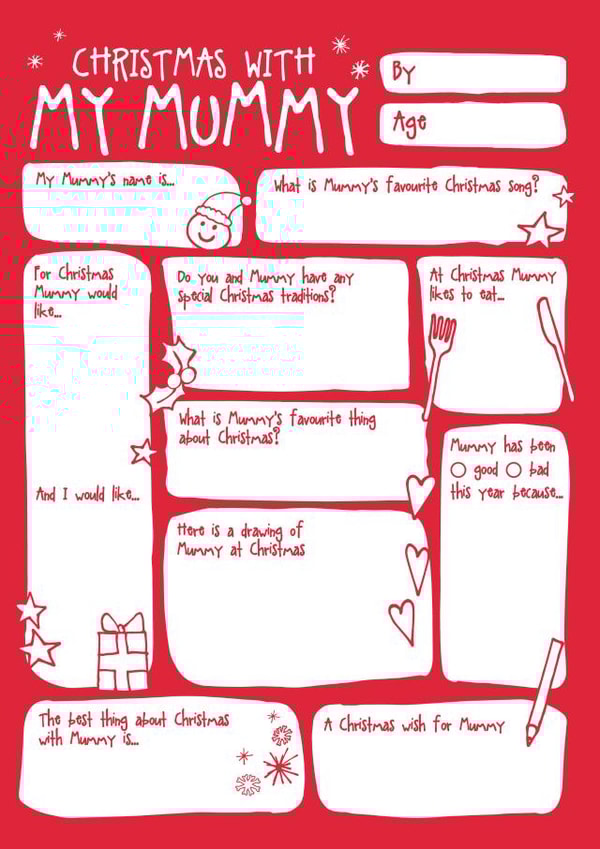 CHRISTMAS WITH
MY MUMMY
By
Age
My Mummy's name is...
What is Mummy's favourite Christmas song?
For Christmas
Mummy would
like...
And I would like...
Do you and Mummy have any
special Christmas traditions?
At Christmas Mummy
likes to eat...
What is Mummy's favourite thing
about Christmas?
Mummy has been
good bad
this year because...
Here is a drawing of
Mummy at Christmas
The best thing about Christmas
with Mummy is...
A Christmas wish for Mummy